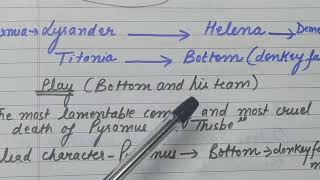 rmia → Lysander → Helena → Deme
Titania → Bottom (donkey fa
Play (Bottom and his team)
The most lamentable com and most cruel
death of Pyramus Thisbe"
lead character - P nus → Bottom → donkey f
m